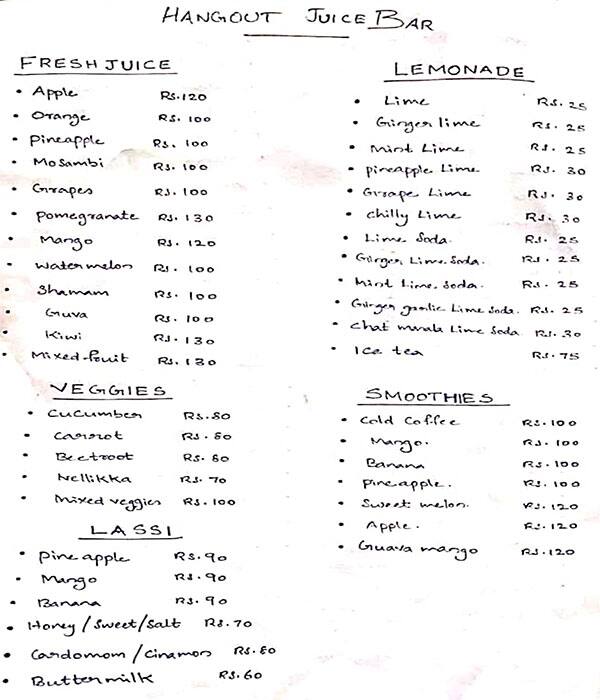 HANGOUT JUICE BAR
FRESH JUICE
• Apple Rs.120
• Orange Rs. 100
• Pineapple Rs. 100
• Mosambi Rs. 100
• Grapes Rs. 100
• Pomegranate Rs. 130
• Mango Rs. 120
• Watermelon Rs. 100
• Shamam Rs. 100
• Guva Rs. 100
• Kiwi Rs. 130
• Mixed-fruit Rs. 130
VEGGIES
• Cucumber Rs. 80
• Carrot Rs. 80
• Beetroot Rs. 80
• Nellikka Rs. 70
• Mixed veggies Rs. 100
LASSI
• Pineapple Rs. 90
• Mango Rs. 90
• Banana Rs. 90
• Honey / Sweet / Salt Rs. 70
• Cardomom / Cinamon Rs. 80
• Buttermilk Rs. 60
LEMONADE
• Lime Rs. 25
• Ginger lime Rs. 25
• Mint Lime Rs. 25
• pineapple Lime Rs. 30
• Grape Lime Rs. 30
• chilly Lime Rs. 30
• Lime Soda. Rs. 25
• Ginger Lime Soda. Rs. 25
• Mint Lime Soda. Rs. 25
• Ginger garlic Lime Soda. Rs. 25
• Chat masala Lime Soda Rs. 30
• Ice tea Rs. 75
SMOOTHIES
• Cold Coffee Rs. 100
• Mango. Rs. 100
• Banana Rs. 100
• pineapple. Rs. 100
• Sweet melon. Rs. 120
• Apple. Rs. 120
• Guava mango Rs. 120